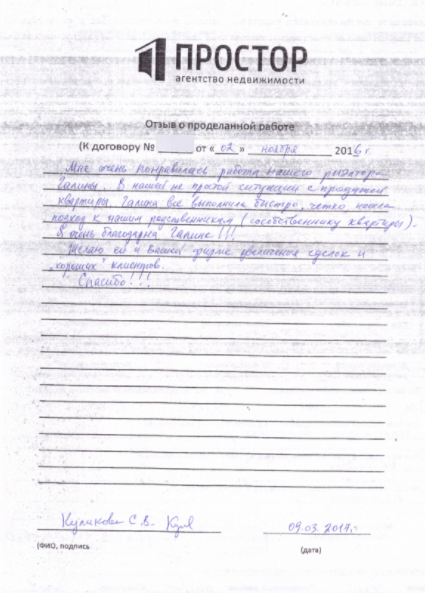 ПРОСТОР
агентство недвижимости
Отзыв о проделанной работе
(К договору № от « 02 » ноября 2016 г.
Мне очень понравилась работа вашего риэлтора
Галины. В нашей не простой ситуации с продажей
квартиры. Галина все выполнила быстро, четко, нашла
подход к нашим родственникам (сособственнику квартиры).
Я очень благодарна Галине!!!
Желаю ей и Вашей фирме увеличения сделок и
„хороших" клиентов.
Спасибо!!!
Куликова С.В.
09.03.2017г.
(ФИО, подпись
(дата)